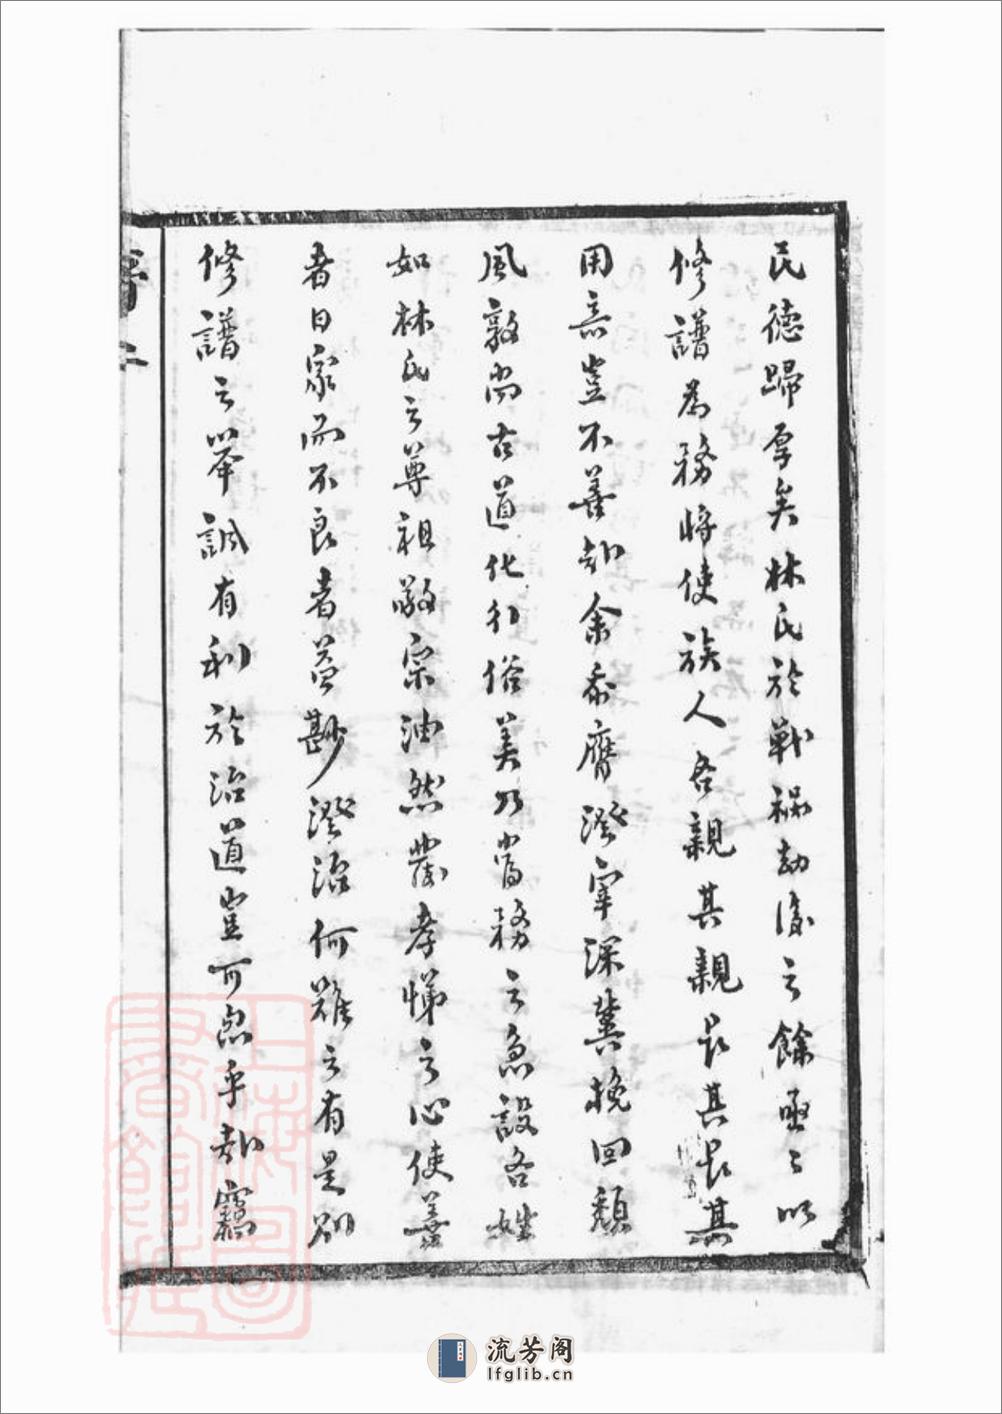 民德歸厚矣林氏於戰禍劫後之餘亟亟以
修譜為務將使族人各親其親長其長其
用意豈不善哉余忝膺澄宰深冀挽回頹
風敦尚古道化行俗美乃當務之急設各姓
如林氏之尊祖敬宗油然發孝悌之心使善
者日家而不良者益尠澄治何難之有是則
修譜之舉誠有利於治道豈可忽乎哉
譜序
上海圖書館藏
流芳阁
lfglib.cn